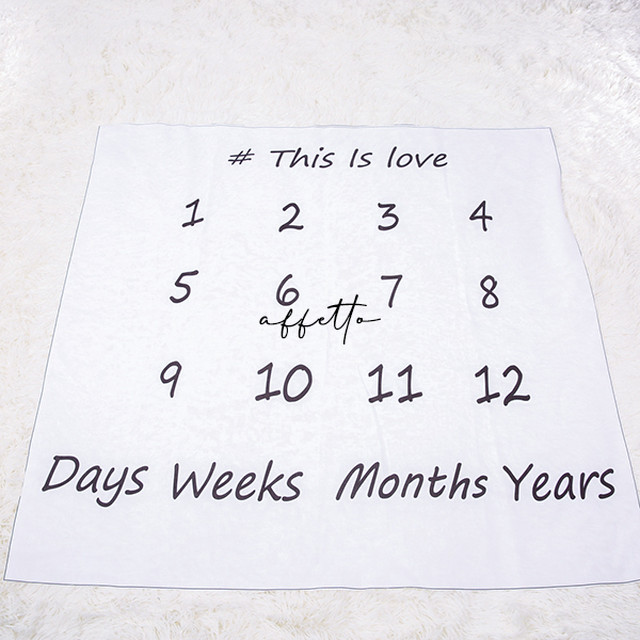 # This Is love
1 2 3 4
5 6 7 8
affetto
9 10 11 12
Days Weeks Months Years